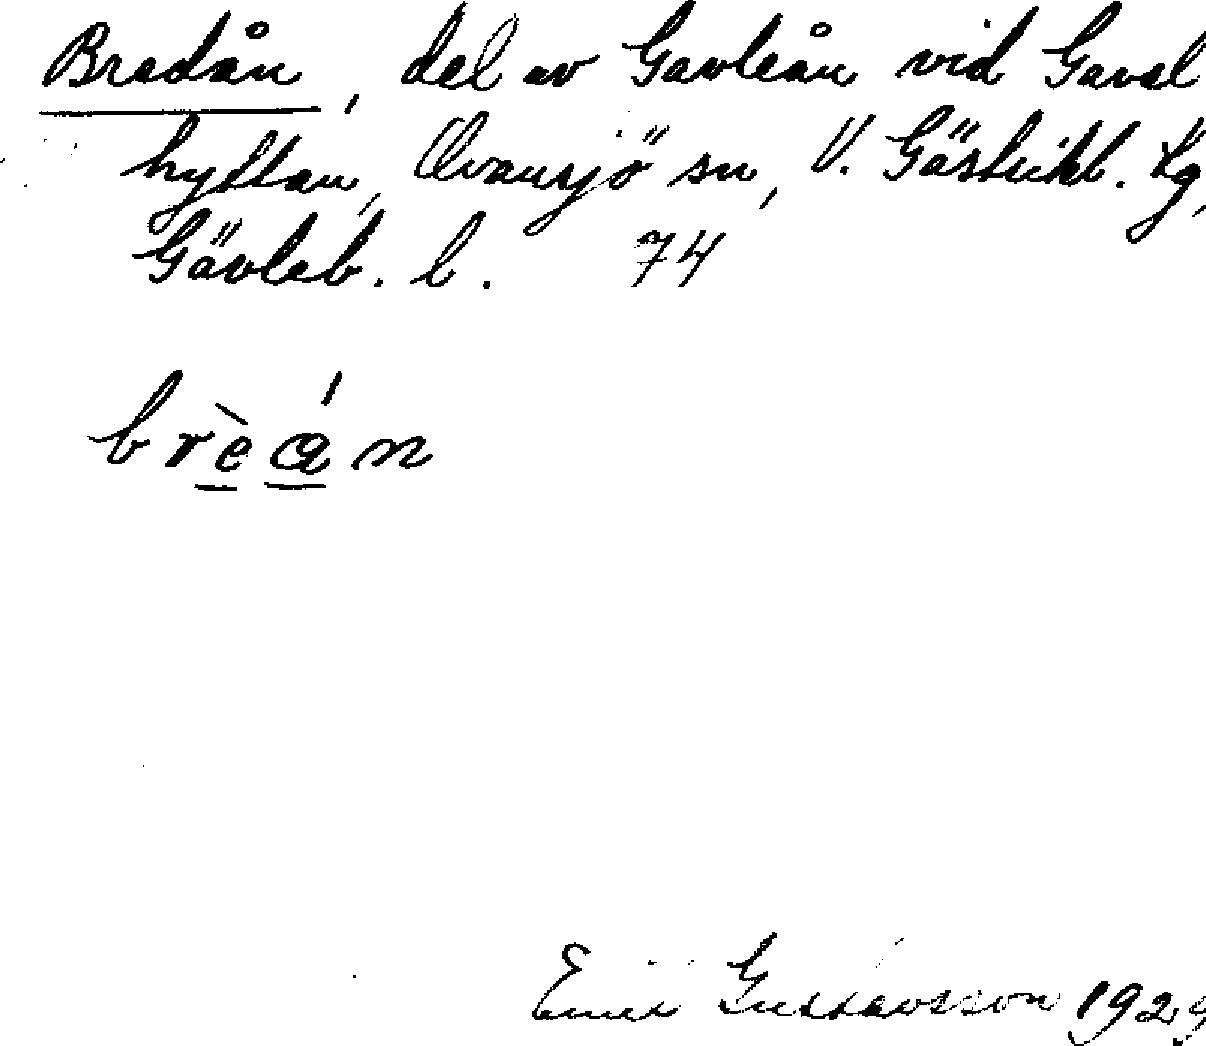 Bredån, del av Gavleån vid Gavel
hyttan, Ovansjö sn, V. Gästrikl. tg,
Gävleb. l. 74
brèán
Emil Gustavsson 1929